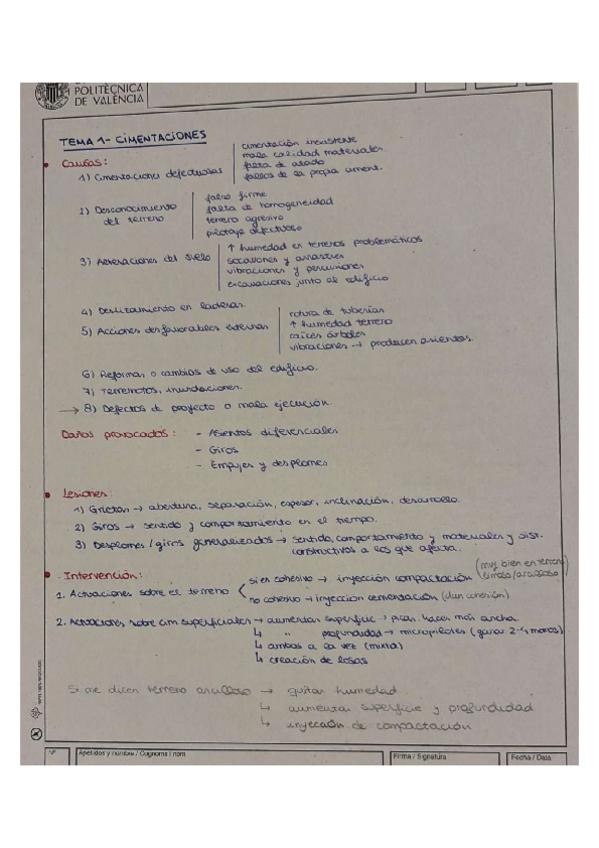 POLITÈCNICA
DE VALÈNCIA
TEMA 1- CIMENTACIONES
Causas:
1) Cimentaciones defectuosas
cimentación inexistente
mala calidad materiales.
falta de atado
fallos de la propia ciment.
2) Desconocimiento del terreno
falso firme
falta de homogeneidad
terreno agresivo
pilotaje defectuoso
3) Alteraciones del suelo
↑ humedad en terrenos problemáticos
socavones y arrastres
vibraciones y percusiones
excavaciones junto al edificio
4) Deslizamiento en laderas.
5) Acciones desfavorables externas
rotura de tuberías
↑ humedad terreno
raíces árboles
vibraciones → producen asientos.
6) Reformas o cambios de uso del edificio.
7) Terremotos, inundaciones.
→ 8) Defectos de proyecto o mala ejecución.
Daños provocados: - Asientos diferenciales
- Giros
- Empujes y desplomes
Lesiones:
1) Grietas → abertura, separación, espesor, inclinación, desarrollo.
2) Giros → sentido y comportamiento en el tiempo.
3) Desplomes/giros generalizados → sentido, comportamiento y materiales y sist.
constructivos a los que afecta.
Intervención:
1. Actuaciones sobre el terreno
si es cohesivo → inyección compactación (muy bien en terreno limoso/arcilloso)
no cohesivo → inyección cementación (dan cohesión)
2. Actuaciones sobre cim superficiales → aumentar superficie → hacer más ancha.
↳ " profundidad → micropilotes (ganar 2-4 metros)
↳ ambos a la vez (mixta)
↳ creación de losas
Si me dicen terreno arcilloso → quitar humedad.
↳ aumentar superficie y profundidad
↳ inyección de compactación
Nº
Apellidos y nombre / Cognoms i nom
Firma / Signatura
Fecha / Data